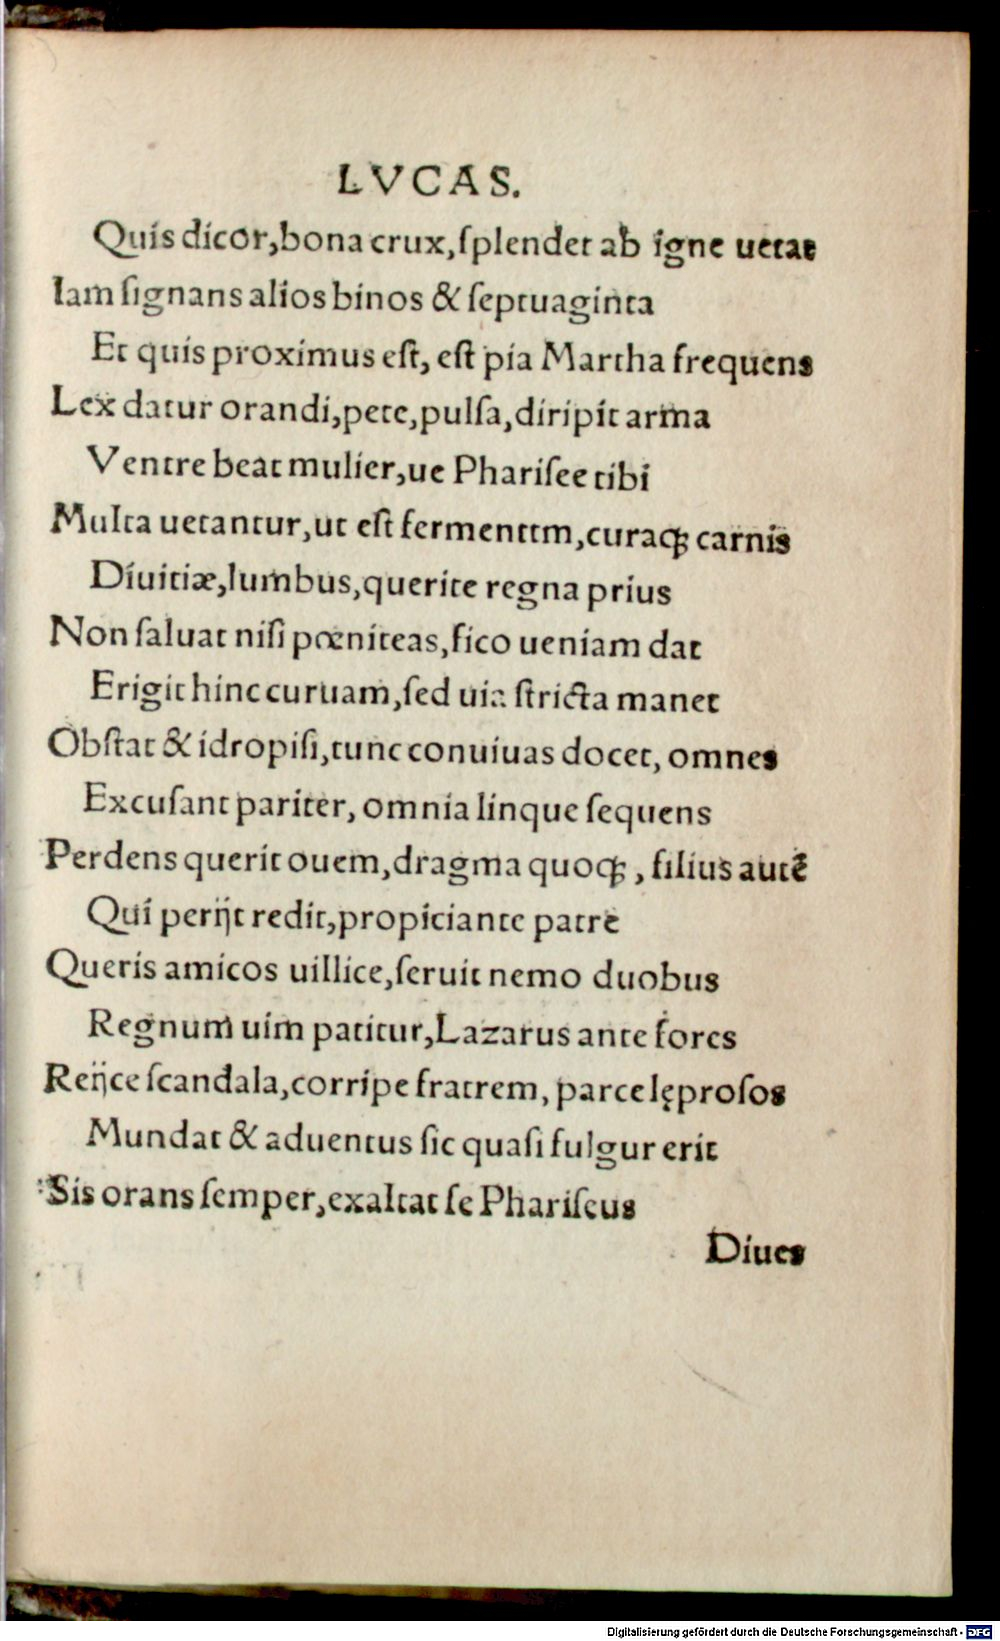 LVCAS.
Quis dicor, bona crux, ſplendet ab igne uetat
Iam ſignans alios binos & ſeptuaginta
Et quis proximus eſt, eſt pia Martha frequens
Lex datur orandi, pete, pulſa, diripit arma
Ventre beat mulier, ue Phariſee tibi
Multa uetantur, ut eſt fermenttm, curaq; carnis
Diuitiæ, lumbus, querite regna prius
Non ſaluat niſi pœniteas, fico ueniam dat
Erigit hinc curuam, ſed uia ſtricta manet
Obſtat & idropiſi, tunc conuiuas docet, omnes
Excuſant pariter, omnia linque ſequens
Perdens querit ouem, dragma quoq;, filius autē
Qui perijt redit, propiciante patre
Queris amicos uillice, ſeruit nemo duobus
Regnum uim patitur, Lazarus ante fores
Reijce ſcandala, corripe fratrem, parce lęproſos
Mundat & aduentus ſic quaſi fulgur erit
Sis orans ſemper, exaltat ſe Phariſeus
Diues
Digitalisierung gefördert durch die Deutsche Forschungsgemeinschaft - DFG